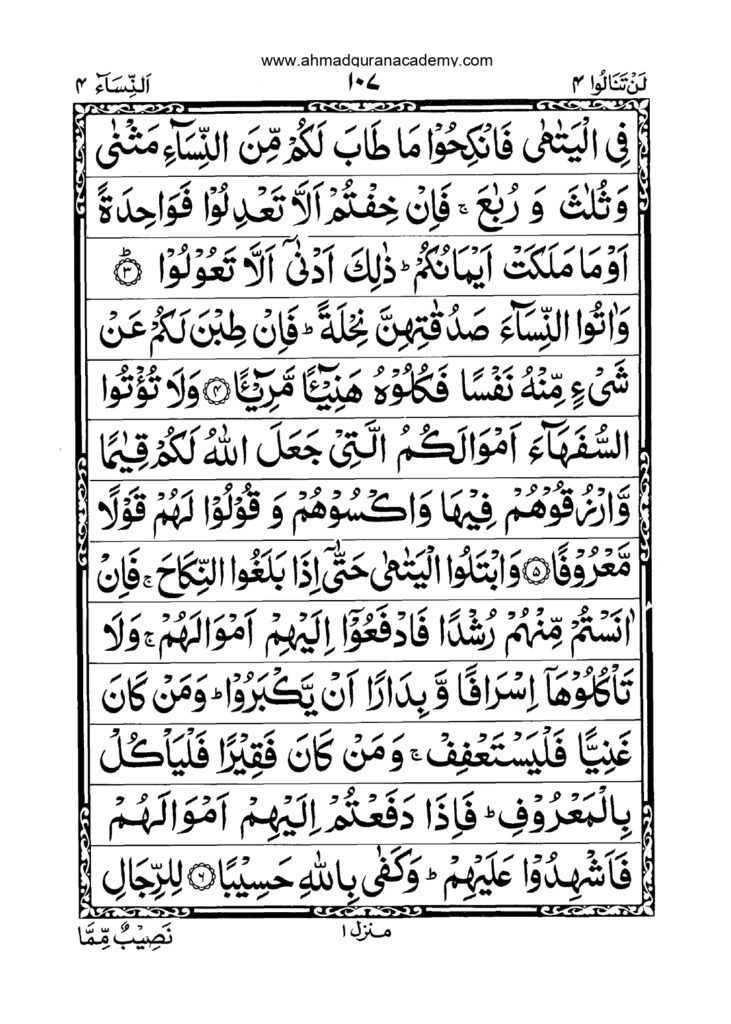 www.ahmadquranacademy.com
لَنْ تَنَالُوا ۴ ۱۰۷ اَلنِّسَآء ۴
فِی الْیَتٰمٰی فَانْکِحُوْا مَا طَابَ لَکُمْ مِّنَ النِّسَآءِ مَثْنٰی
وَثُلٰثَ وَ رُبٰعَ ۚ فَاِنْ خِفْتُمْ اَلَّا تَعْدِلُوْا فَوَاحِدَةً
اَوْ مَا مَلَکَتْ اَیْمَانُکُمْ ؕ ذٰلِكَ اَدْنٰۤی اَلَّا تَعُوْلُوْا ؕ﴿۳﴾
وَاٰتُوا النِّسَآءَ صَدُقٰتِهِنَّ نِحْلَةً ؕ فَاِنْ طِبْنَ لَکُمْ عَنْ
شَیْءٍ مِّنْهُ نَفْسًا فَکُلُوْهُ هَنِیْٓئًا مَّرِیْٓئًا ﴿۴﴾ وَلَا تُؤْتُوا
السُّفَهَآءَ اَمْوَالَکُمُ الَّتِیْ جَعَلَ اللّٰهُ لَکُمْ قِیٰمًا
وَّارْزُقُوْهُمْ فِیْهَا وَاکْسُوْهُمْ وَ قُوْلُوْا لَهُمْ قَوْلًا
مَّعْرُوْفًا ﴿۵﴾ وَابْتَلُوا الْیَتٰمٰی حَتّٰۤی اِذَا بَلَغُوا النِّکَاحَ ۚ فَاِنْ
اٰنَسْتُمْ مِّنْهُمْ رُشْدًا فَادْفَعُوْۤا اِلَیْهِمْ اَمْوَالَهُمْ ۚ وَلَا
تَاْکُلُوْهَاۤ اِسْرَافًا وَّ بِدَارًا اَنْ یَّکْبَرُوْا ؕ وَمَنْ کَانَ
غَنِیًّا فَلْیَسْتَعْفِفْ ۚ وَمَنْ کَانَ فَقِیْرًا فَلْیَاْکُلْ
بِالْمَعْرُوْفِ ؕ فَاِذَا دَفَعْتُمْ اِلَیْهِمْ اَمْوَالَهُمْ
فَاَشْهِدُوْا عَلَیْهِمْ ؕ وَکَفٰی بِاللّٰهِ حَسِیْبًا ﴿۶﴾ لِلرِّجَالِ
منزل ۱
نَصِیْبٌ مِّمَّا